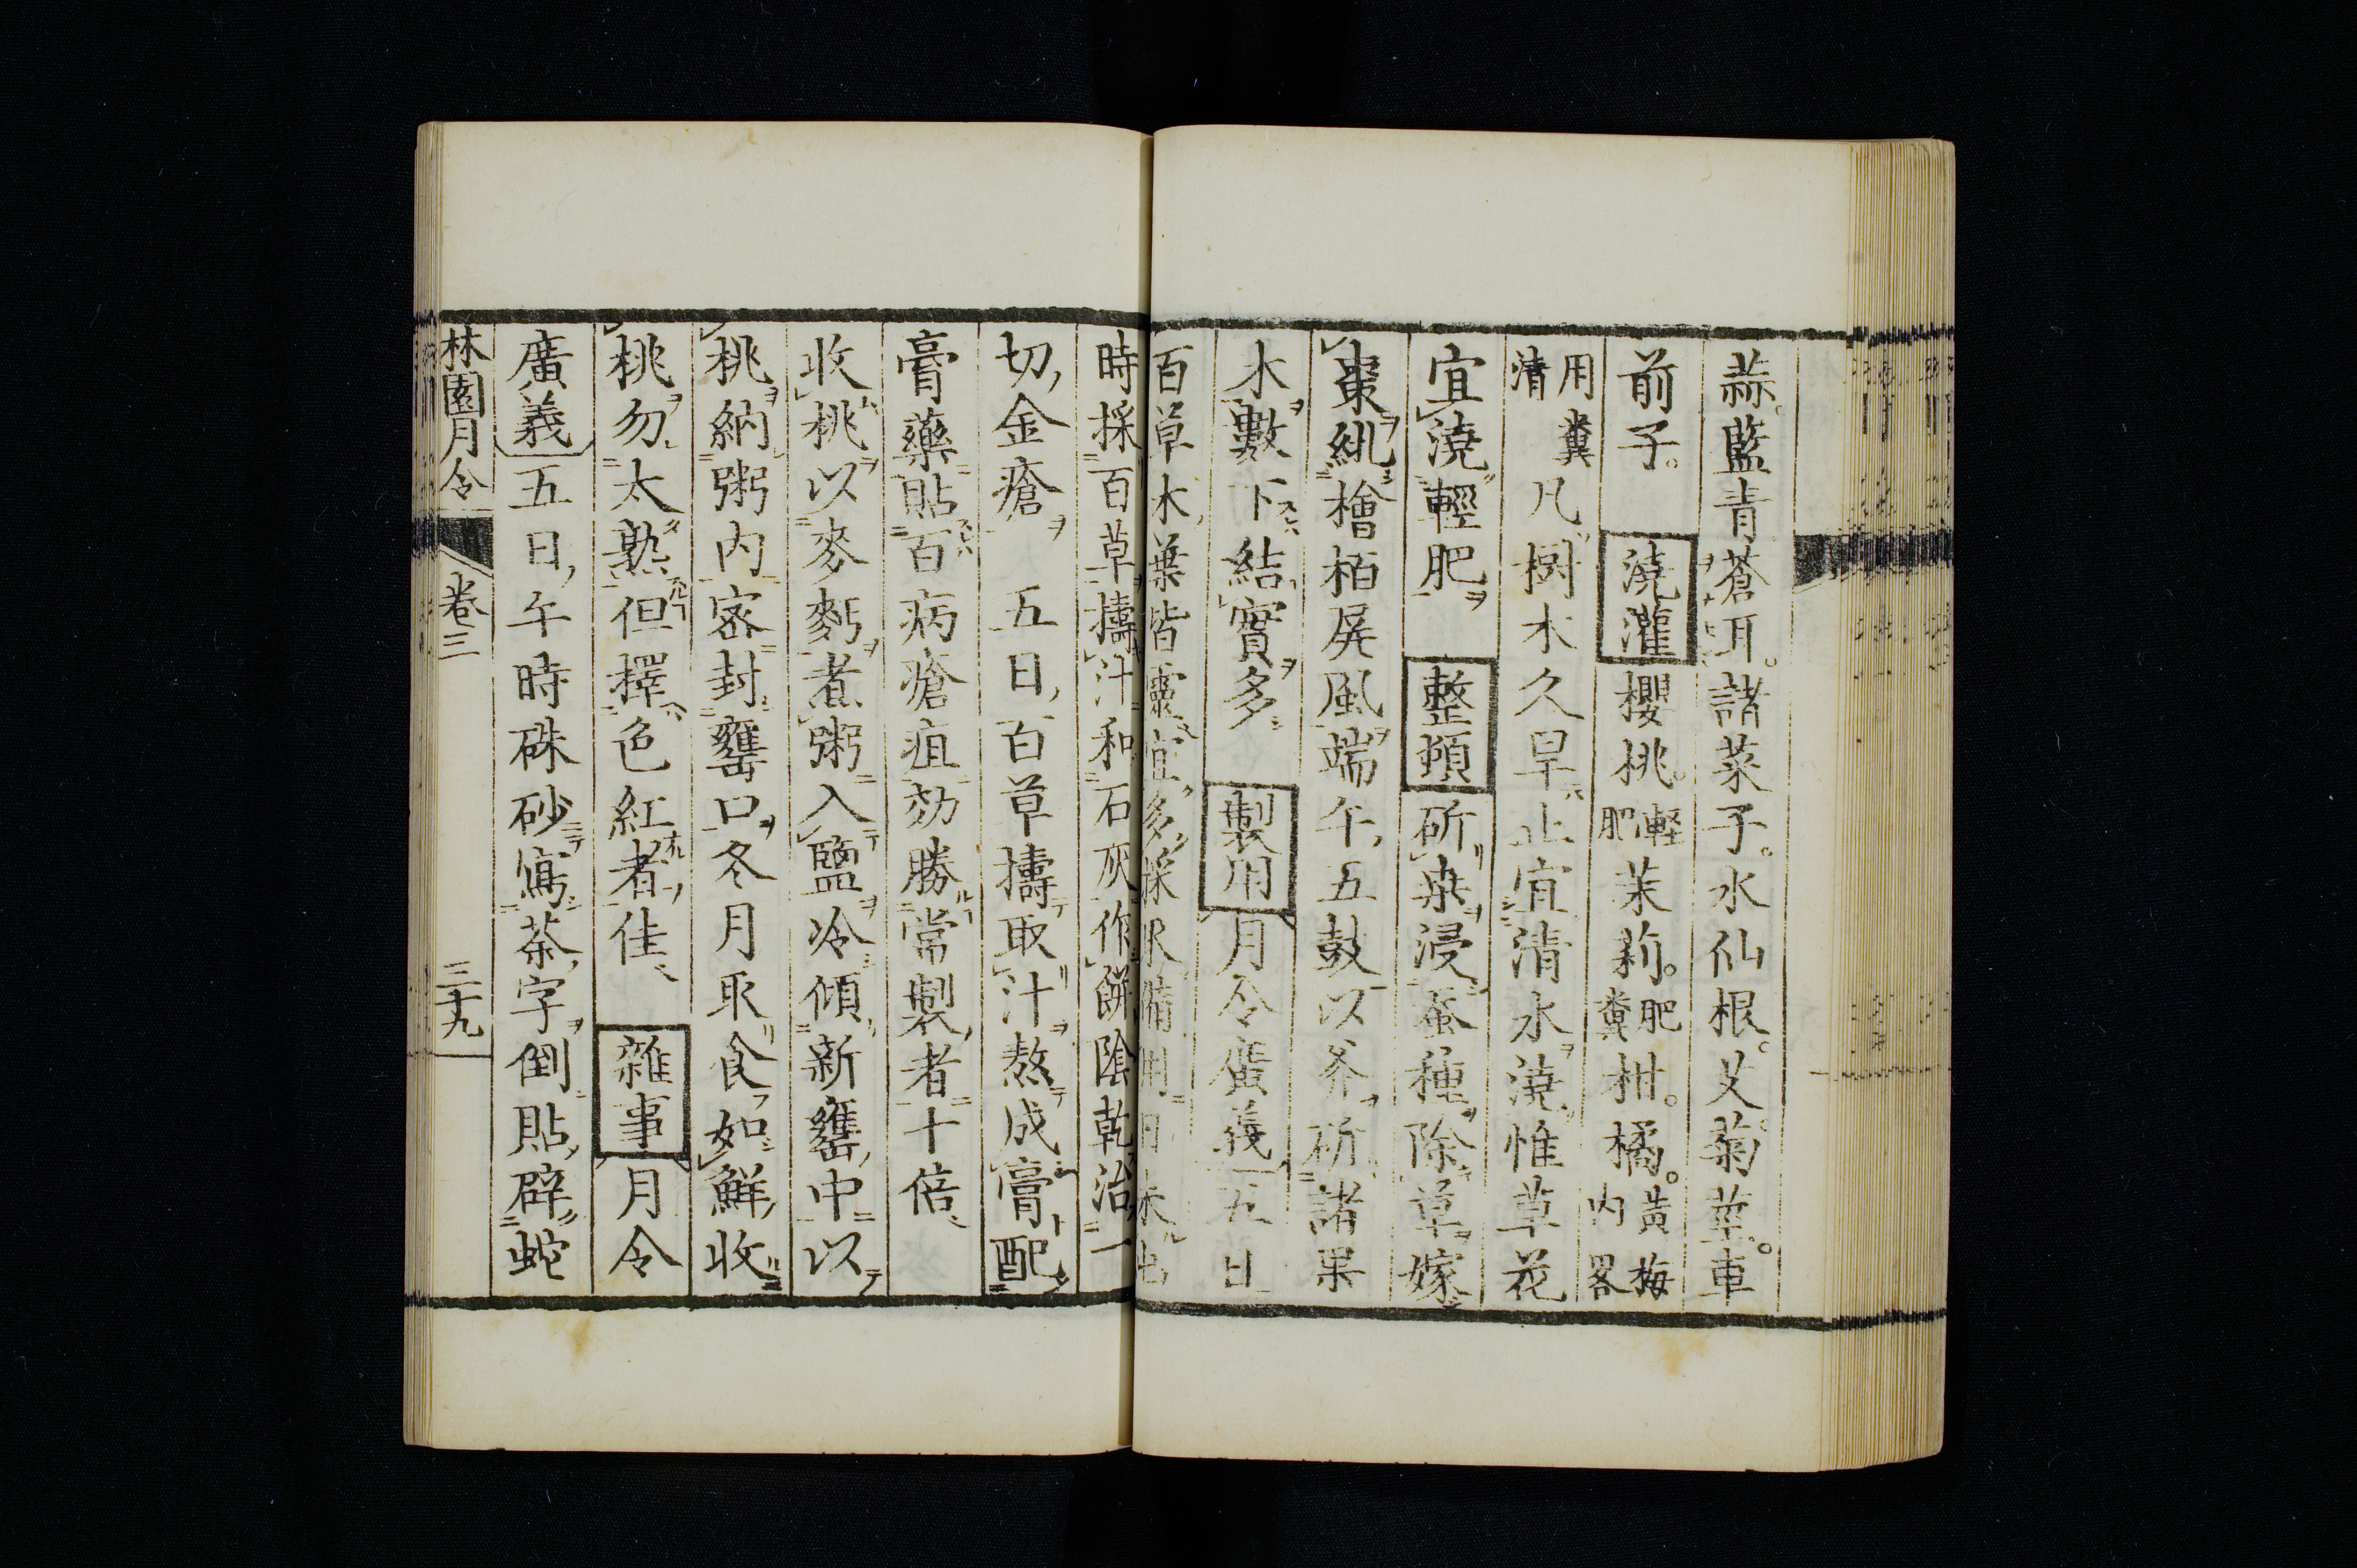 蒜。藍青蒼耳。諸菜子。水仙根。艾。菊葉。車
前子。澆灌櫻桃。輕肥茉莉。肥糞柑。橘。黃梅內畧
用糞清凡樹木久旱止宜清水澆惟草花
宜澆輕肥整頓斫桒浸蚕種除草嫁
棗紕檜栢屏風端午五鼓以斧斫諸果
木數下結實多製用月令廣義五日
百草木葉皆靈宜多採取備用日未出
時採百草擣汁和石灰作餅陰乾治一
切金瘡 五日百草擣取汁熬成膏配
膏藥貼百病瘡疽効勝常製者十倍
收桃以麥麪煮粥入鹽冷傾新罋中以
桃納粥内密封罋口冬月取食如鮮收
桃勿太熟但擇色紅者佳雜事月令
廣義五日午時硃砂寫茶字倒貼辟蛇
林園月令 卷三 三十九